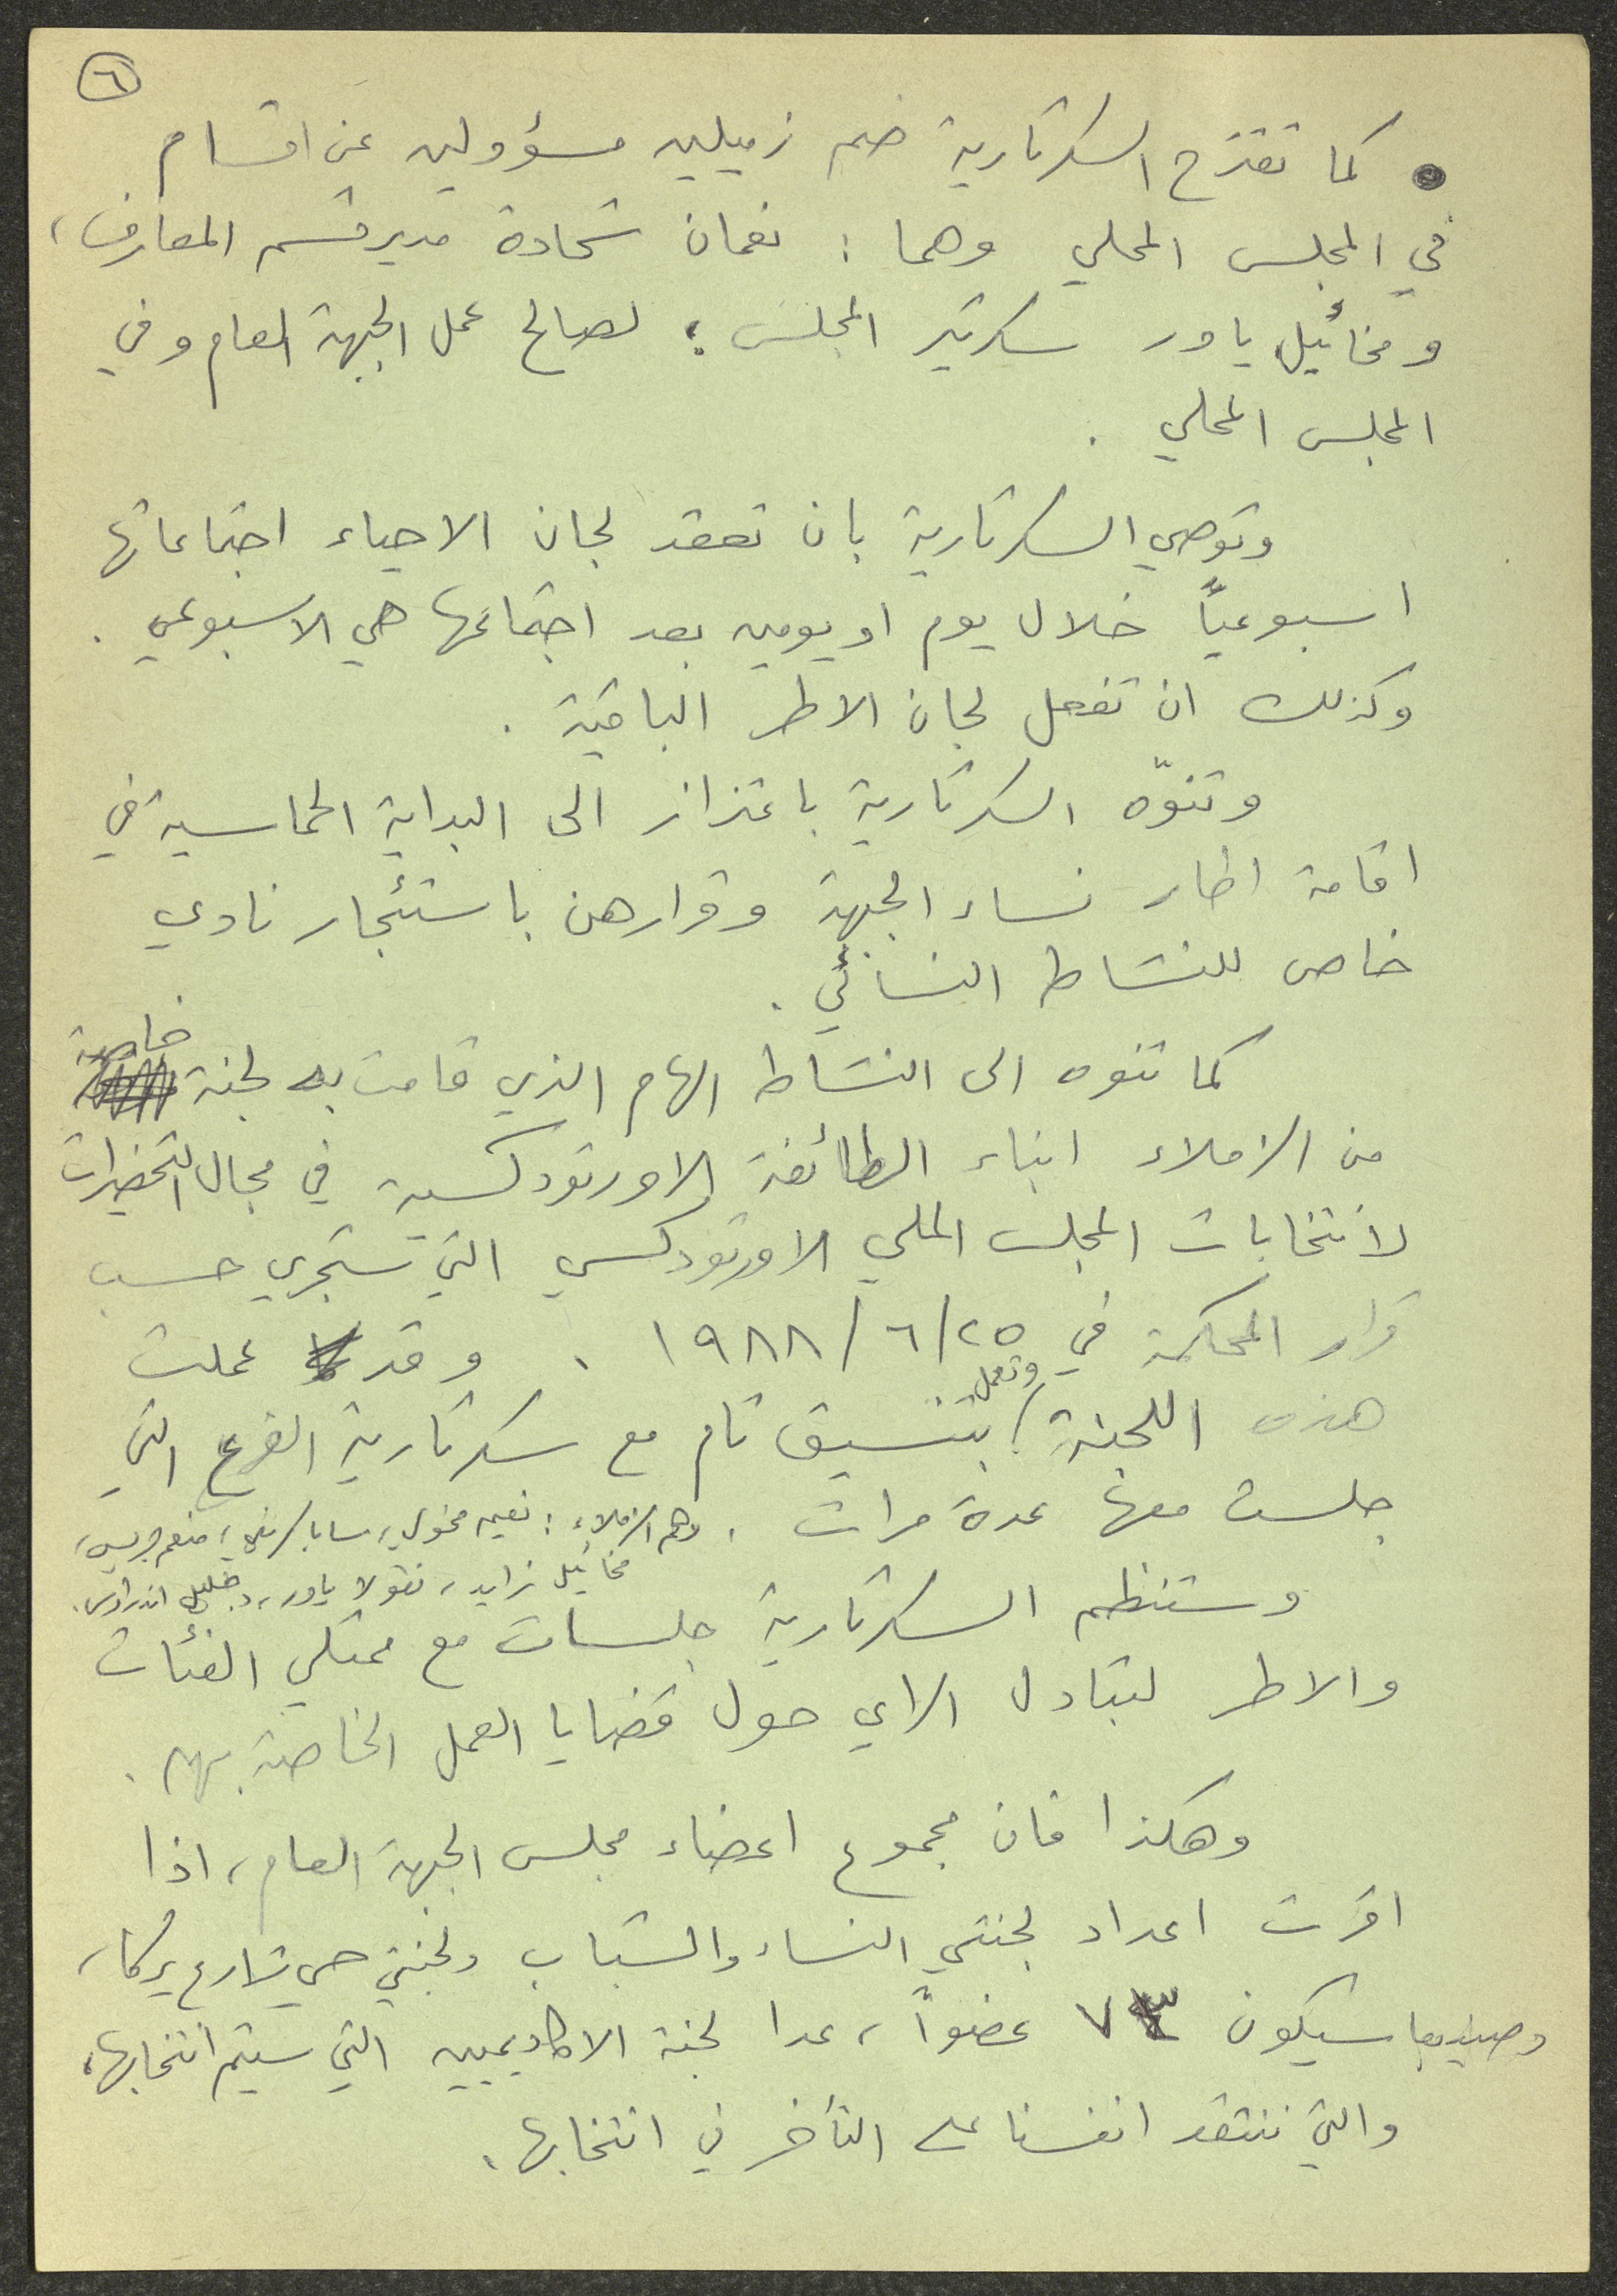 ٦
● كما تقترح السكرتارية ضم زميلين مسؤولين عن اقسام
في المجلس المحلي وهما : نعمان شحادة مدير قسم المعارف،
ومخائيل ياور سكرتير المجلس؛ لصالح عمل الجبهة العام وفي
المجلس المحلي .
وتوصي السكرتارية بان تعقد لجان الاحياء اجتماعاتها
اسبوعياً خلال يوم او يومين بعد اجتماعها هي الاسبوعي .
وكذلك ان تفعل لجان الاطر الباقية .
وتنوّه السكرتارية باعتزاز الى البداية الحماسية في
اقامة اطار نساء الجبهة وقرارهن باستئجار نادي
خاص للنشاط النسائي .
كما تنوه الى النشاط الهام الذي قامت به لجنة خاصة
من الزملاء ابناء الطائفة الاورتودكسية في مجال التحضيرات
لانتخابات المجلس الملي الاورتودكسي التي ستجري حسب
قرار المحكمة في ٢٥/٦/١٩٨٨ . وقد عملت
هذه اللجنة وتعمل بتنسيق تام مع سكرتارية الفرع التي
جلست معها عدة مرات . وهم الزملاء : نعيم مخولي، سابا، منعم جريس،
مخائيل زايد، نقولا ياور، وخليل اندراوس.
وستنظم السكرتارية جلسات مع ممثلي الفئات
والاطر لتبادل الراي حول قضايا العمل الخاصة بهم .
وهكذا فان مجموع اعضاء مجلس الجبهة العام، اذا
اقرت اعداد لجنتي النساء والشباب ولجنتي حي شارع يركا،
سيكون ٧٣ عضواً، عدا لجنة الاكاديميين التي سيتم انتخابها،
والتي ننتقد انفسنا على التأخر في انتخابها.